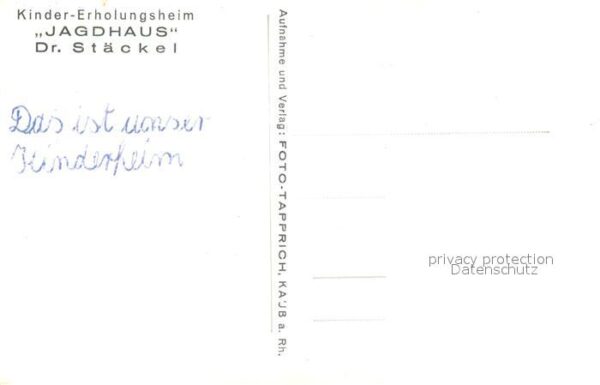 Kinder-Erholungsheim
„JAGDHAUS"
Dr. Stäckel
Das ist unser
Kinderheim
Aufnahme und Verlag: FOTO-TAPPRICH, KAUB a. Rh.
privacy protection
Datenschutz